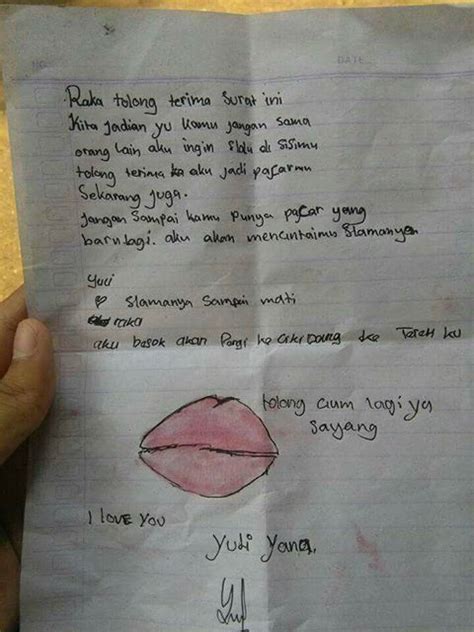 NO
DATE
Raka tolong terima surat ini
Kita jadian yu kamu jangan sama
orang lain aku ingin slalu di sisimu
tolong terima aku jadi pacarmu
Sekarang juga.
Jangan sampai kamu punya pacar yang
baru lagi. aku akan mencintaimu slamanya
Yuli
♡ Slamanya sampai mati
raka
aku besok akan Pergi ke ke
tolong cium lagi ya
sayang
I LOVE YOU
Yuli